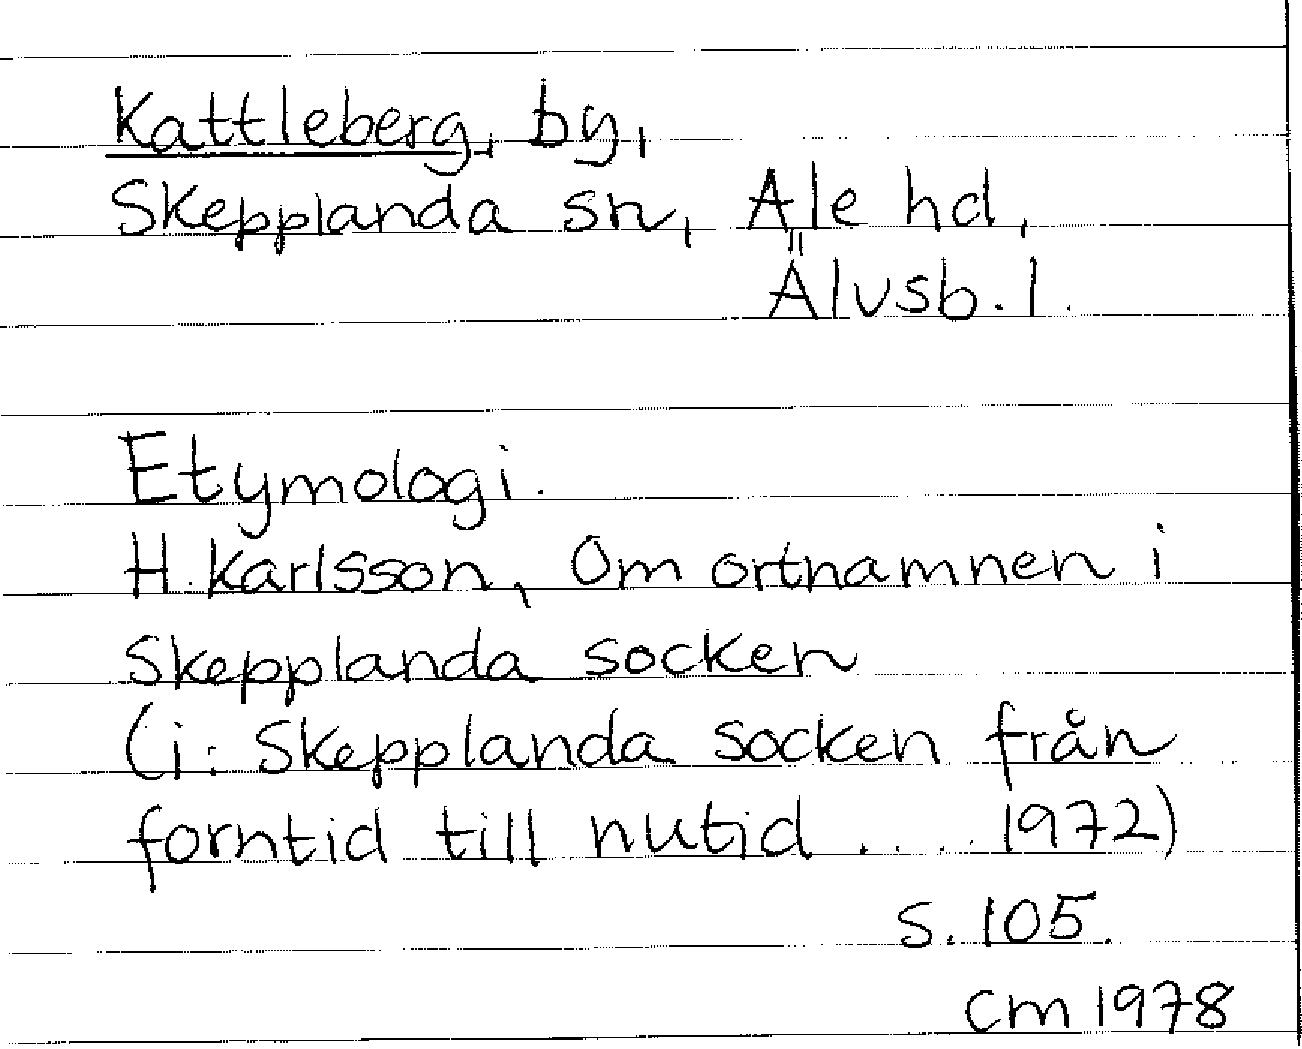 Kattleberg, by,
Skepplanda sn, Ale hd,
Älvsb. l.
Etymologi.
H. Karlsson, Om ortnamnen i
Skepplanda socken
(i: Skepplanda socken från
forntid till nutid .... 1972)
s. 105.
CM 1978